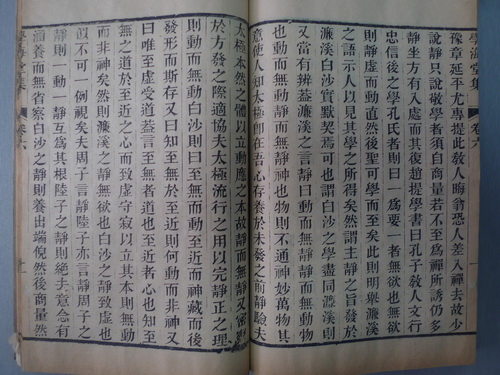 學海堂集
卷六
豫章延平尤專提此教人晦翁恐人差入禪去故少
說靜只說敬學者須自商量若不至為禪所誘仍多
靜坐方有入處而其復趙提學書曰孔子教人文行
忠信後之學孔氏者則曰一為要一者無欲也無欲
則靜虛而動直然後聖可學而至矣此則明舉濂溪
之語示人以見其學之所得矣然謂主靜之旨發於
濂溪白沙實默契焉可也謂白沙之學盡同濂溪則
又當有辨蓋濂溪之言靜曰動而無靜靜而無動物
也動而無動靜而無靜神也物則不通神妙萬物其
意使人知太極卽在吾心存養於未發之前靜驗夫
太極本然之體以立動應之本故靜而無靜又密察
於方發之際適協夫太極流行之用以完靜正之理
則動而無動白沙則曰至無而動至近而神藏而後
發形而斯存又曰知至無於至近則何動而非神又
曰唯至虛受道蓋言至無者道也至近者心也知至
無之道於至近之心而致虛守寂以立其本則無動
而非神矣然則濂溪之靜無欲也白沙之靜致虛也
似不可一例視矣夫周子言靜陸子亦言靜周子之
靜則一動一靜互爲其根陸子之靜則絕去意念有
涵養而無省察白沙之靜則養出端倪然後商量然
卷六